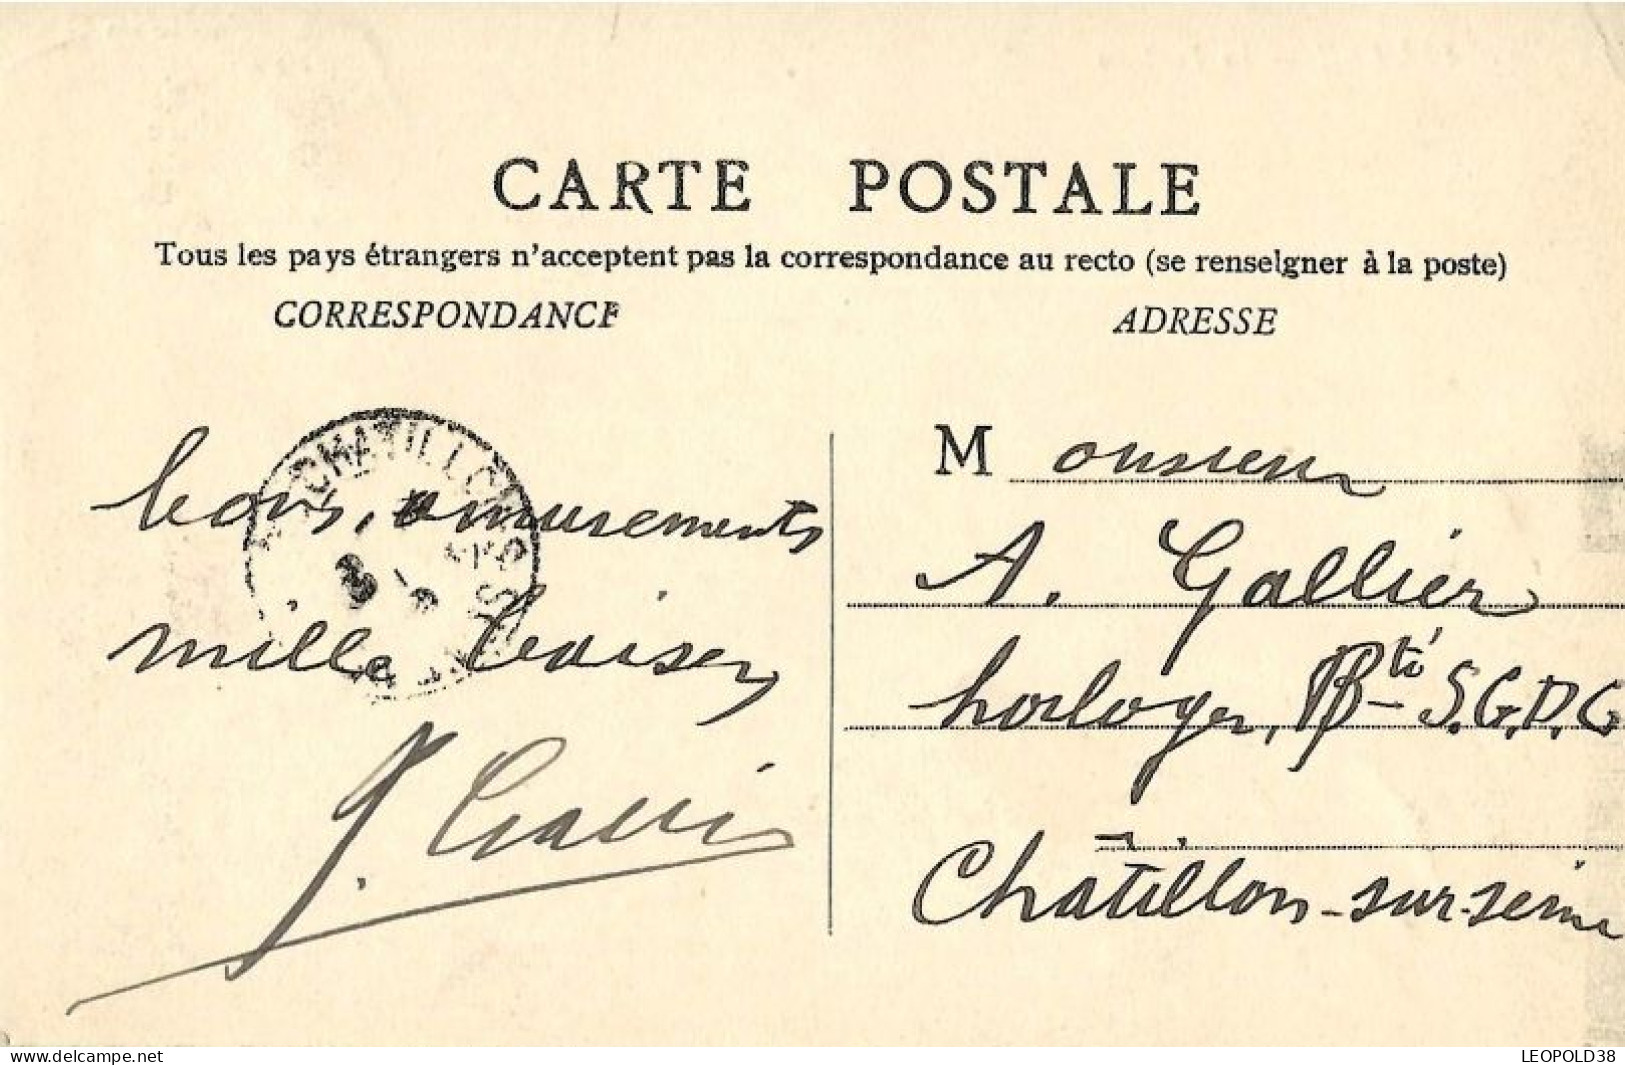 CARTE POSTALE
Tous les pays étrangers n'acceptent pas la correspondance au recto (se renseigner à la poste)
CORRESPONDANCE
ADRESSE
CHATILLON S
bons amusements
mille baisers
Monsieur
A. Gallier
horloger, Bté S.G.D.G
Chatillon-sur-seine
www.delcampe.net
LEOPOLD38